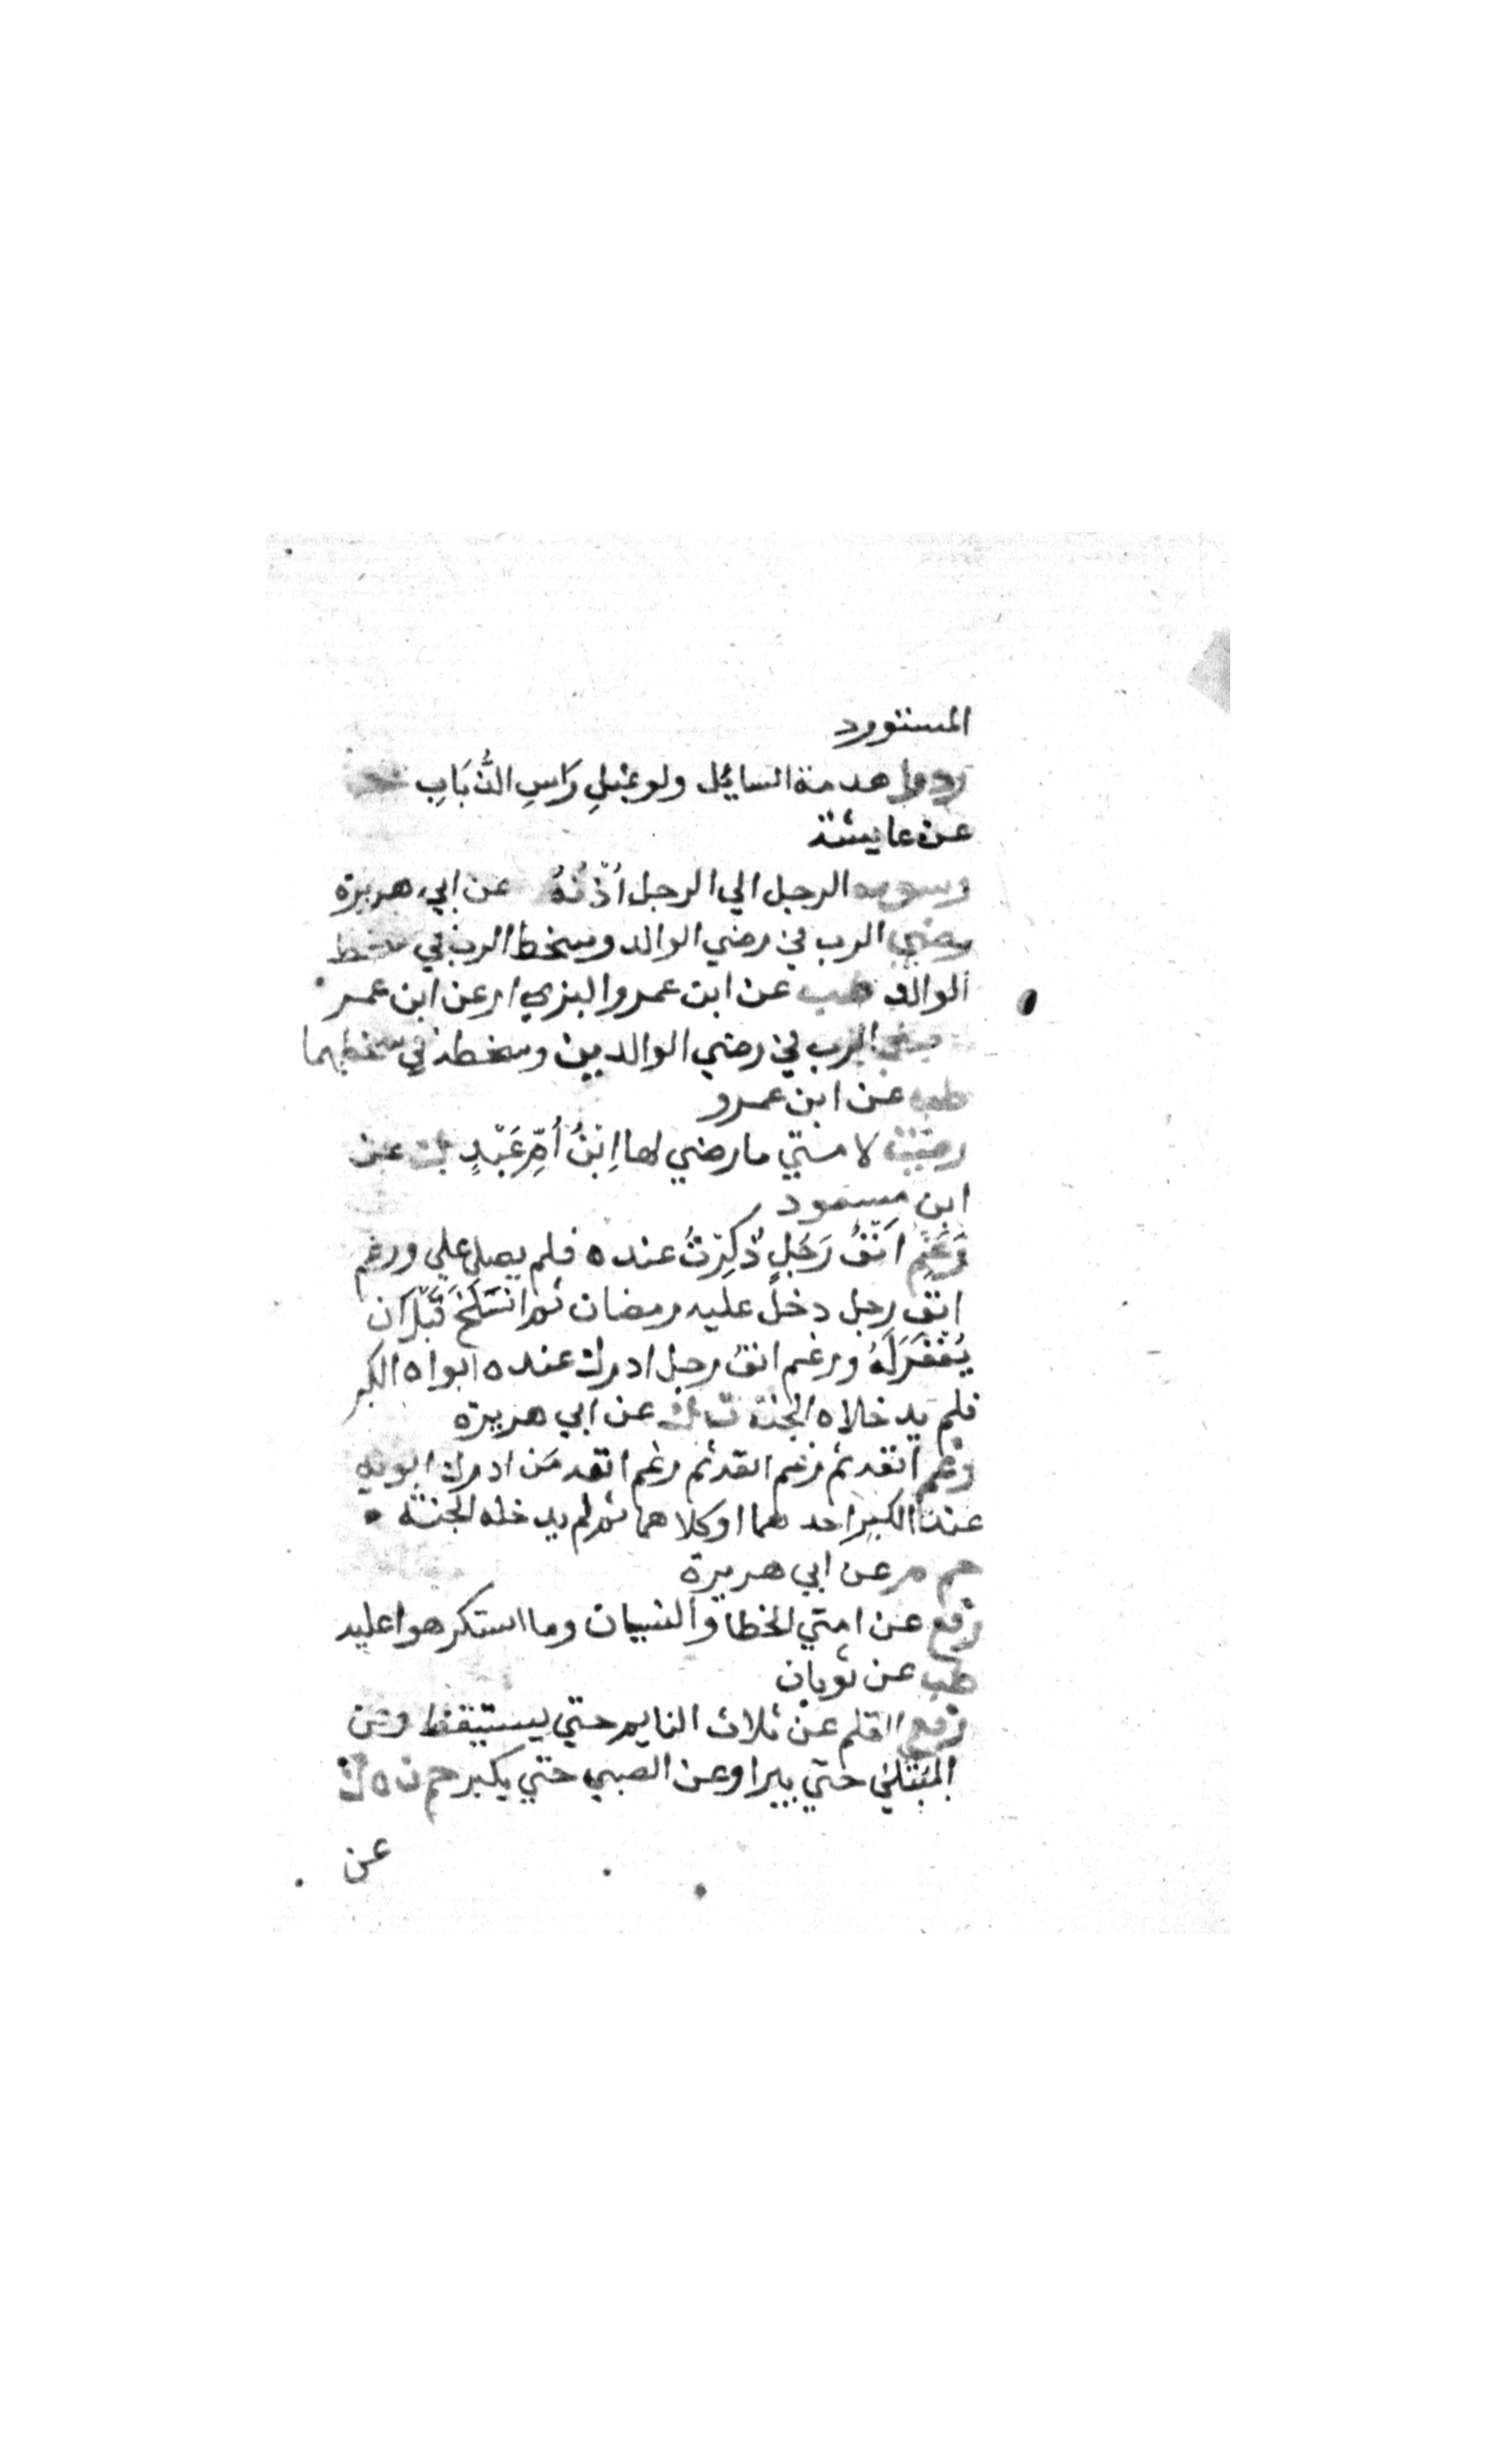 المستورد
ردوا مدمة السايل ولو بمثل رَاسِ الذُّبَابِ
عن عايشة
الرجل الي الرجل اُذْنُهُ عن ابي هريرة
رضي الرب في رضي الوالد وسخط الرب في سخط
الوالد طب عن ابن عمرو البزار عن ابن عمر
رضي الرب في رضي الوالدين وسخطه في سخطهما
طب عن ابن عمرو
رضيت لامتي ما رضي لها اِبْنُ أُمِّ عَبْدٍ ك عن
ابن مسعود
رَغِمَ اَنْفُ رَجُلٍ ذُكِرْتُ عنده فلم يصلي علي ورغم
انف رجل دخل عليه رمضان ثم انسَلَخَ قَبْلَ اَن
يُغْفَرَ لَهُ ورغم انفُ رجل ادرك عنده ابواه الكبر
فلم يدخلاه الجنة ت ك عن ابي هريرة
رغم انفه ثم رغم انفه ثم رغم انفه مَن ادرك ابويه
عند الكبر احدهما او كلاهما ثم لم يدخله الجنة
حم م عن ابي هريرة
رفع عن امتي الخطاء والنسيان وما استكرهوا عليه
طب عن ثوبان
رفع القلم عن ثلاث النايم حتي يستيقظ وعن
المبتلي حتي يبرا وعن الصبي حتي يكبر حم ن ه ك
عن